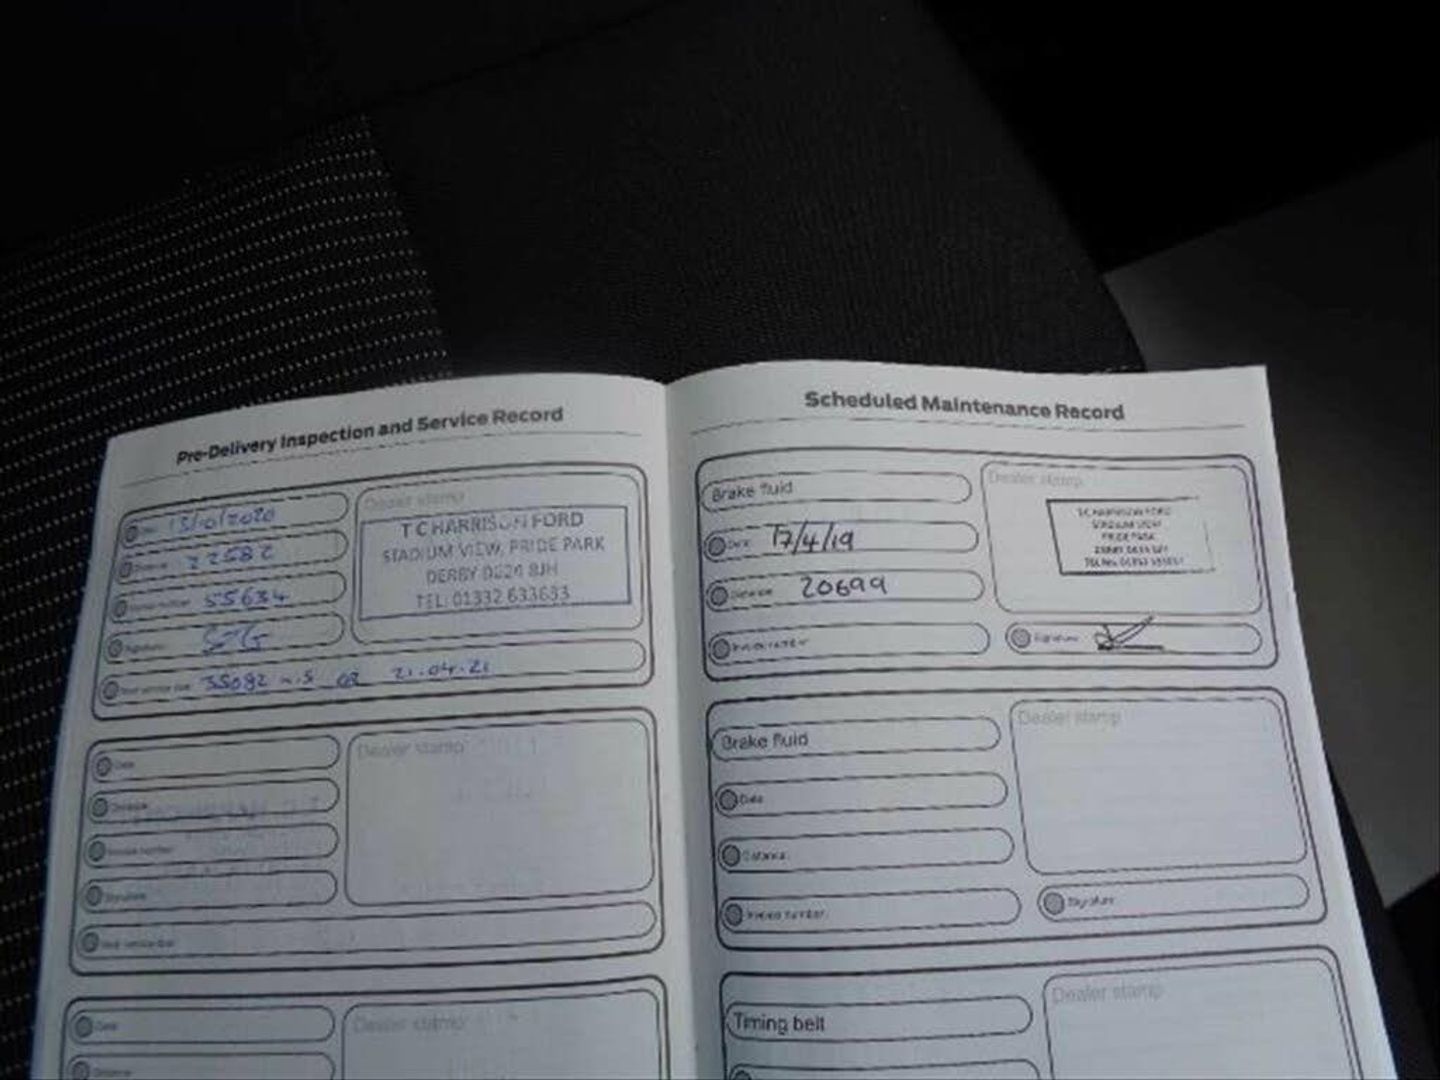 Pre-Delivery Inspection and Service Record
Dealer stamp
Date 13/10/2020
Distance 22582
Invoice number 55634
Signature
T C HARRISON FORD
STADIUM VIEW, PRIDE PARK
DERBY DE24 8JH
TEL: 01332 633633
Next service due 35082 21.04.21
Date
Dealer stamp
Distance
Invoice number
Signature
Next service due
Date
Dealer stamp
Distance
Scheduled Maintenance Record
Brake fluid
Dealer stamp
Date 17/4/19
Distance 20699
Invoice number
T C HARRISON FORD
STADIUM VIEW
PRIDE PARK
DERBY DE24 8JH
Signature
Brake fluid
Dealer stamp
Date
Distance
Invoice number
Signature
Timing belt
Dealer stamp